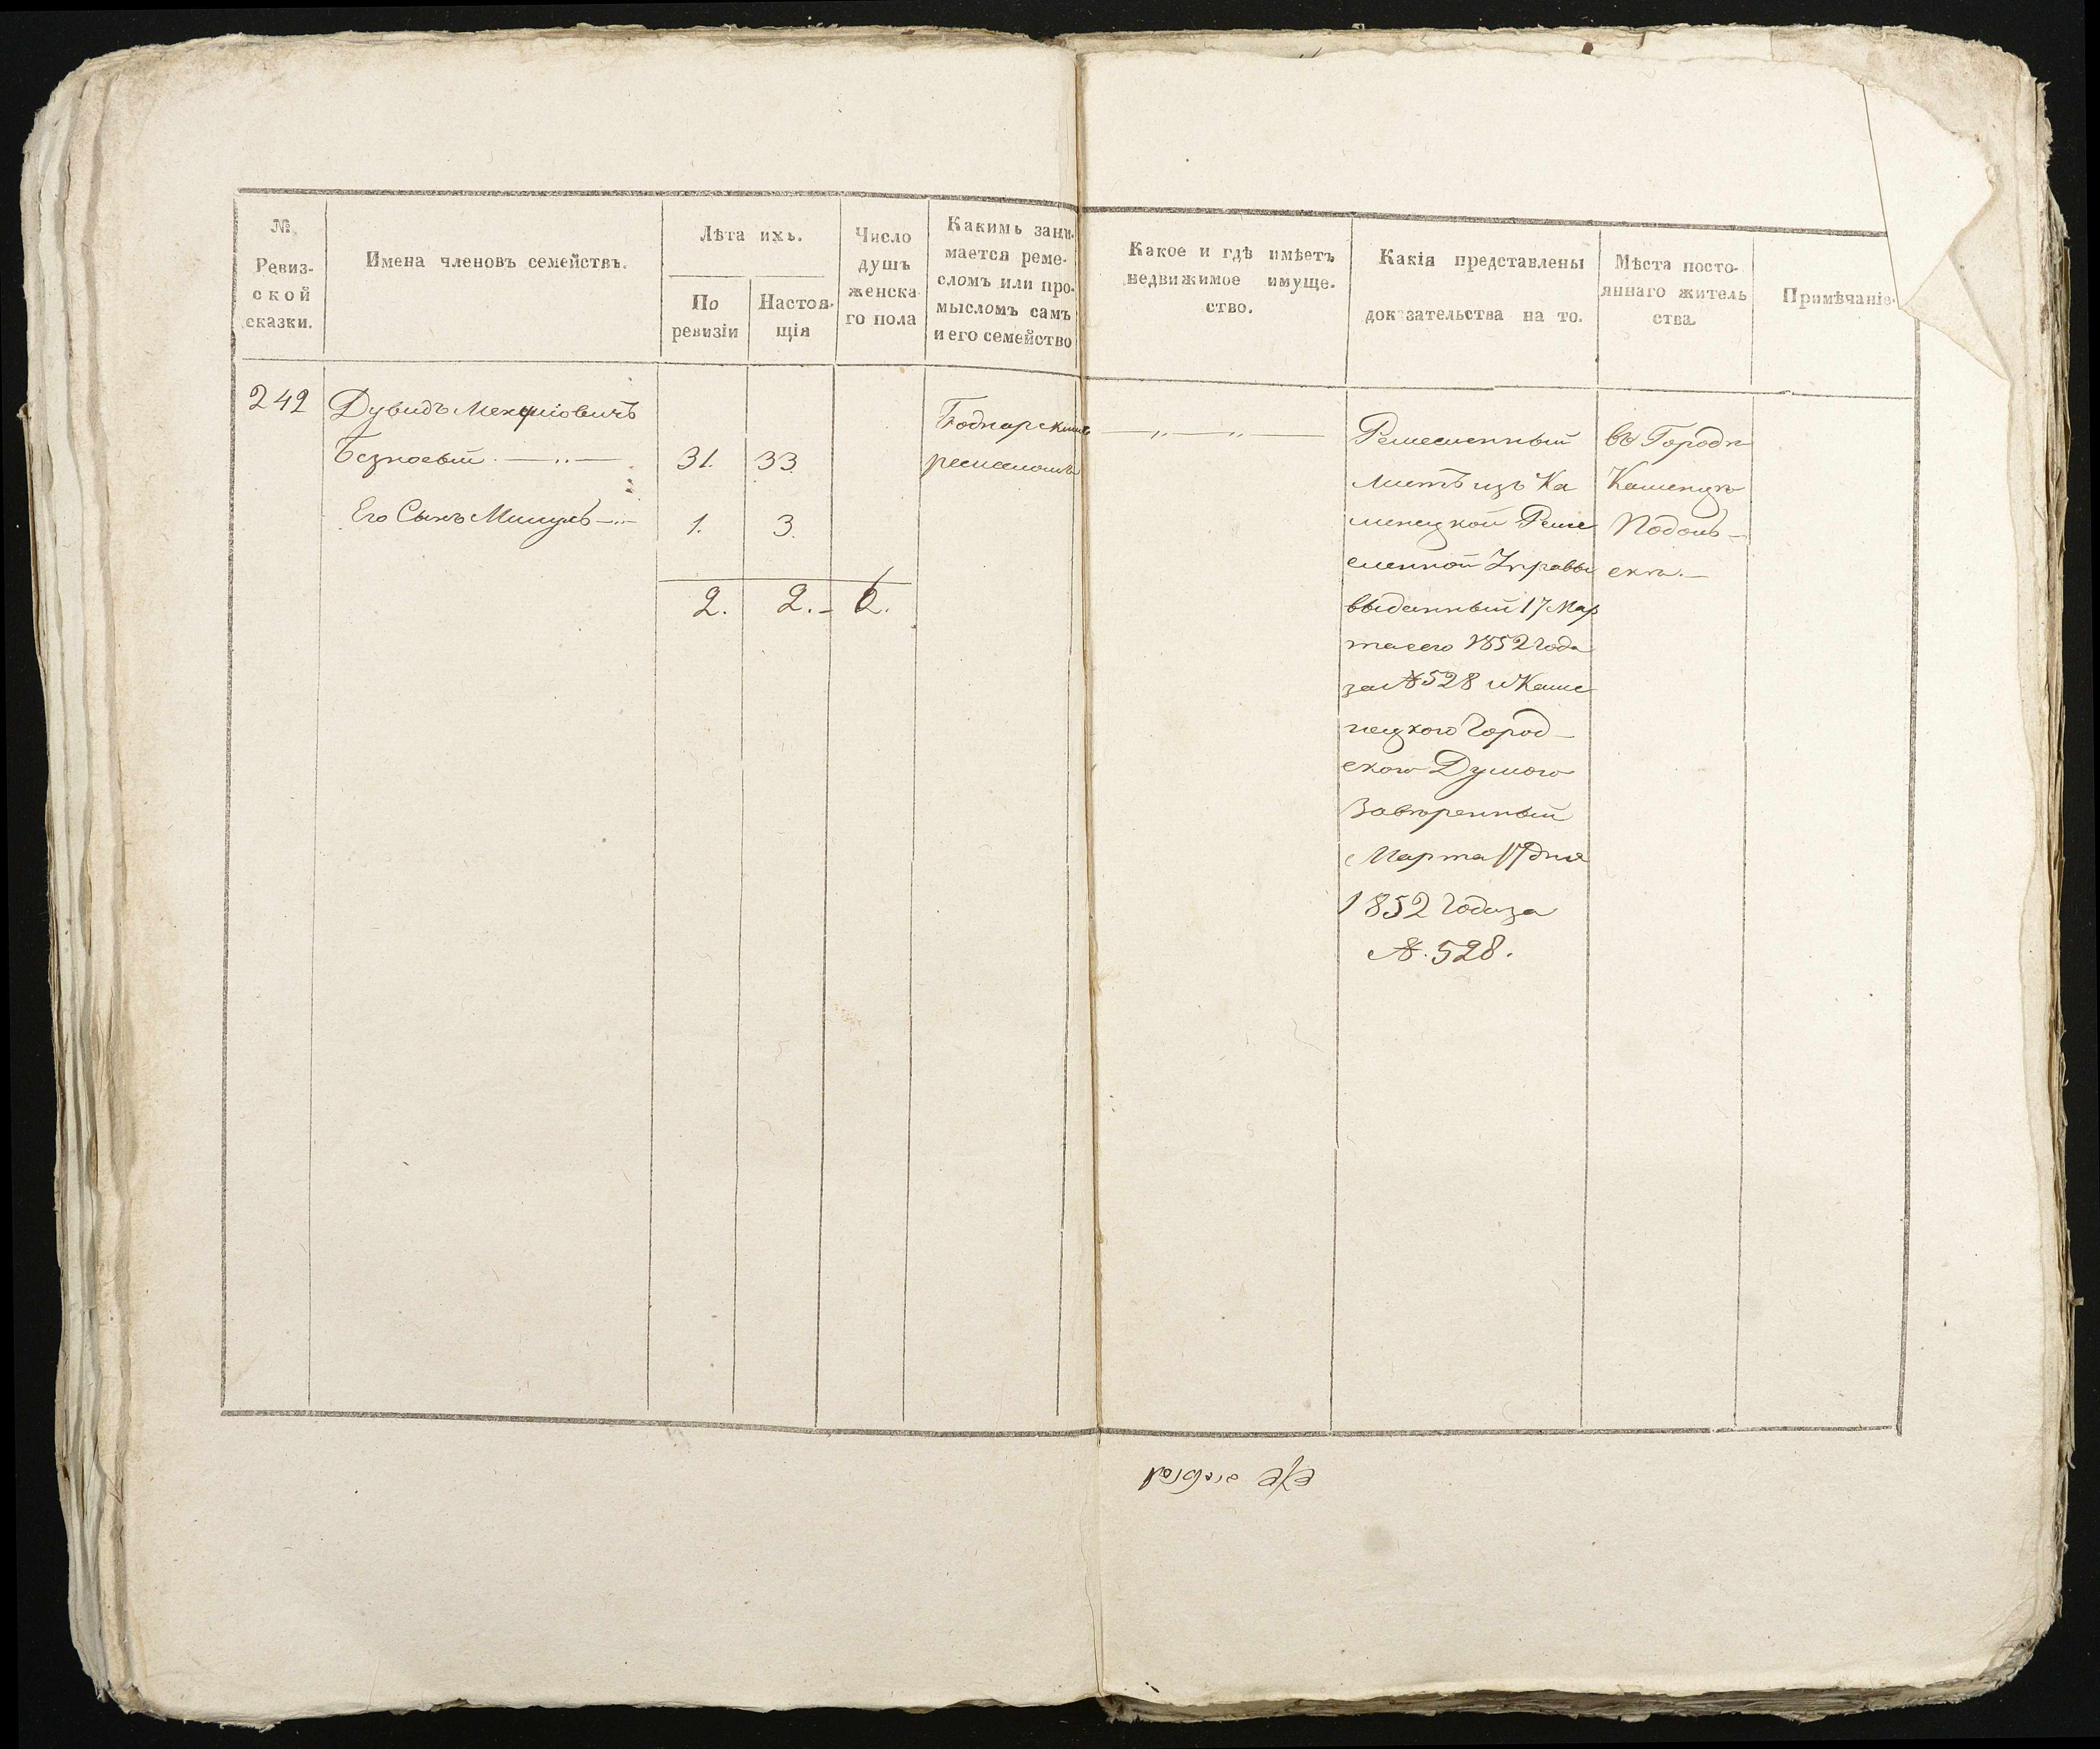 №
Ревиз-
ской
сказки.
Имена членовъ семействъ.
Лѣта ихъ.
По
ревизіи
Настоя-
щія
Число
душъ
женска
го пола
Какимъ зани-
мается реме-
сломъ или про-
мысломъ самъ
и его семейство
Какое и гдѣ имѣетъ
недвижимое имуще-
ство.
Какія представлены
доказательства на то.
Мѣста посто-
яннаго житель
ства.
Примѣчаніе.
242
Дувидъ
Безносый
31.
33.
Его Сынъ
1.
3.
2.
2.
2.
Боднарскимъ
ремесломъ
Ремесленный
листъ изъ Ка
менецкой Реме
сленной Управы
выданный 17 Мар
та сего 1852 года
за № 528 и Каме
нецкою Город-
скою Думою
Завѣренный
Марта 17 дня
1852 года за
№. 528.
въ Городѣ
Каменцѣ
Подоль-
скѣ.